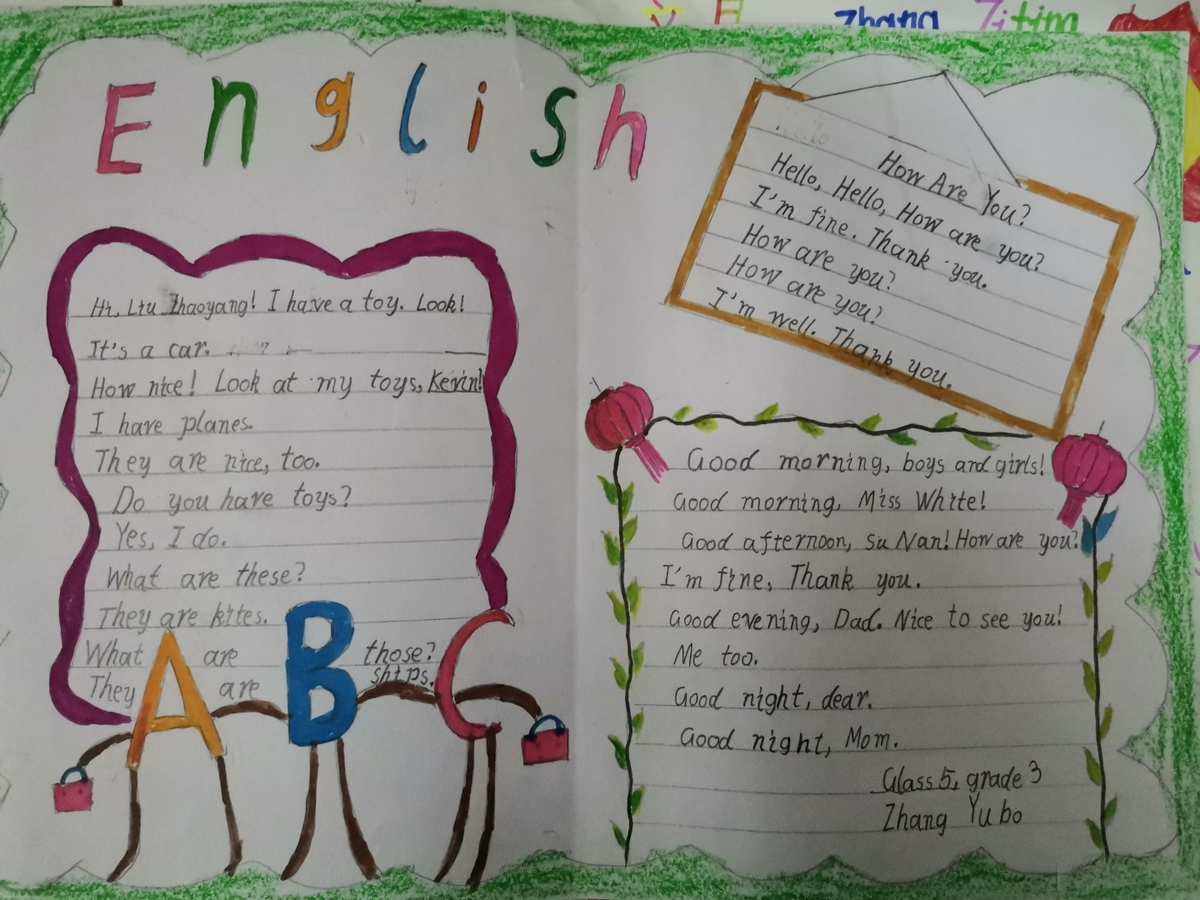 Zhang Zitim
English
How Are You?
Hello, Hello, How are you?
I'm fine. Thank you.
How are you?
How are you?
I'm well. Thank you.
Hi, Liu Zhaoyang! I have a toy. Look!
It's a car.
How nice! Look at my toys, Kevin!
I have planes.
They are nice, too.
Do you have toys?
Yes, I do.
What are these?
They are kites.
What are those?
They are ships.
A B C
Good morning, boys and girls!
Good morning, Miss White!
Good afternoon, Su Nan! How are you?
I'm fine, Thank you.
Good evening, Dad. Nice to see you!
Me too.
Good night, dear.
Good night, Mom.
Glass 5, grade 3
Zhang Yu bo